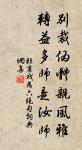 別裁偽體親風雅
轉益多師是汝師
杜甫戲為六絕句詞典
網集